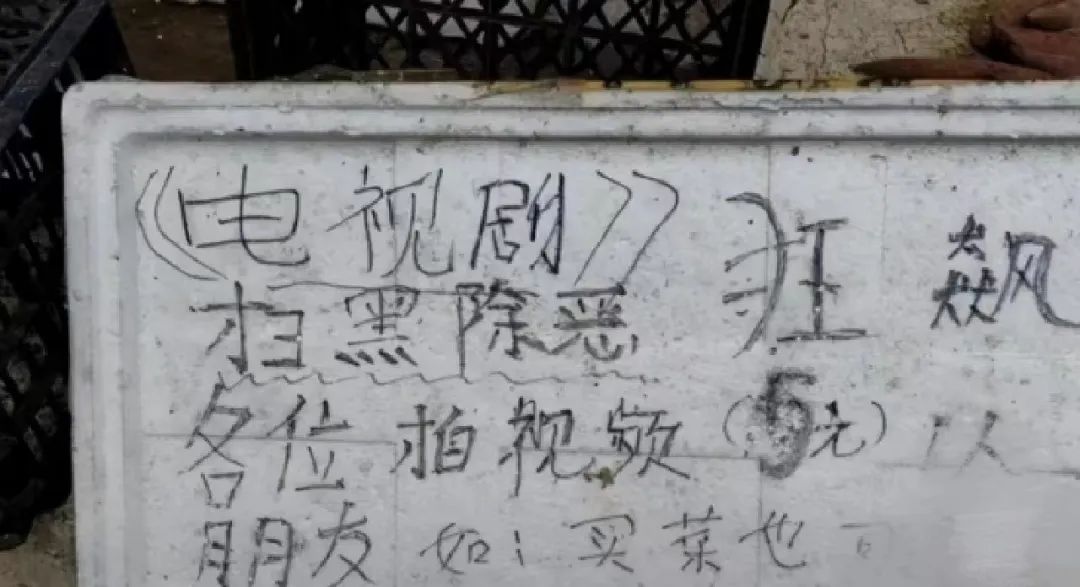 《电视剧》 狂飙
扫黑除恶
各位 拍视频 (5元) 以
朋友 如: 买菜也